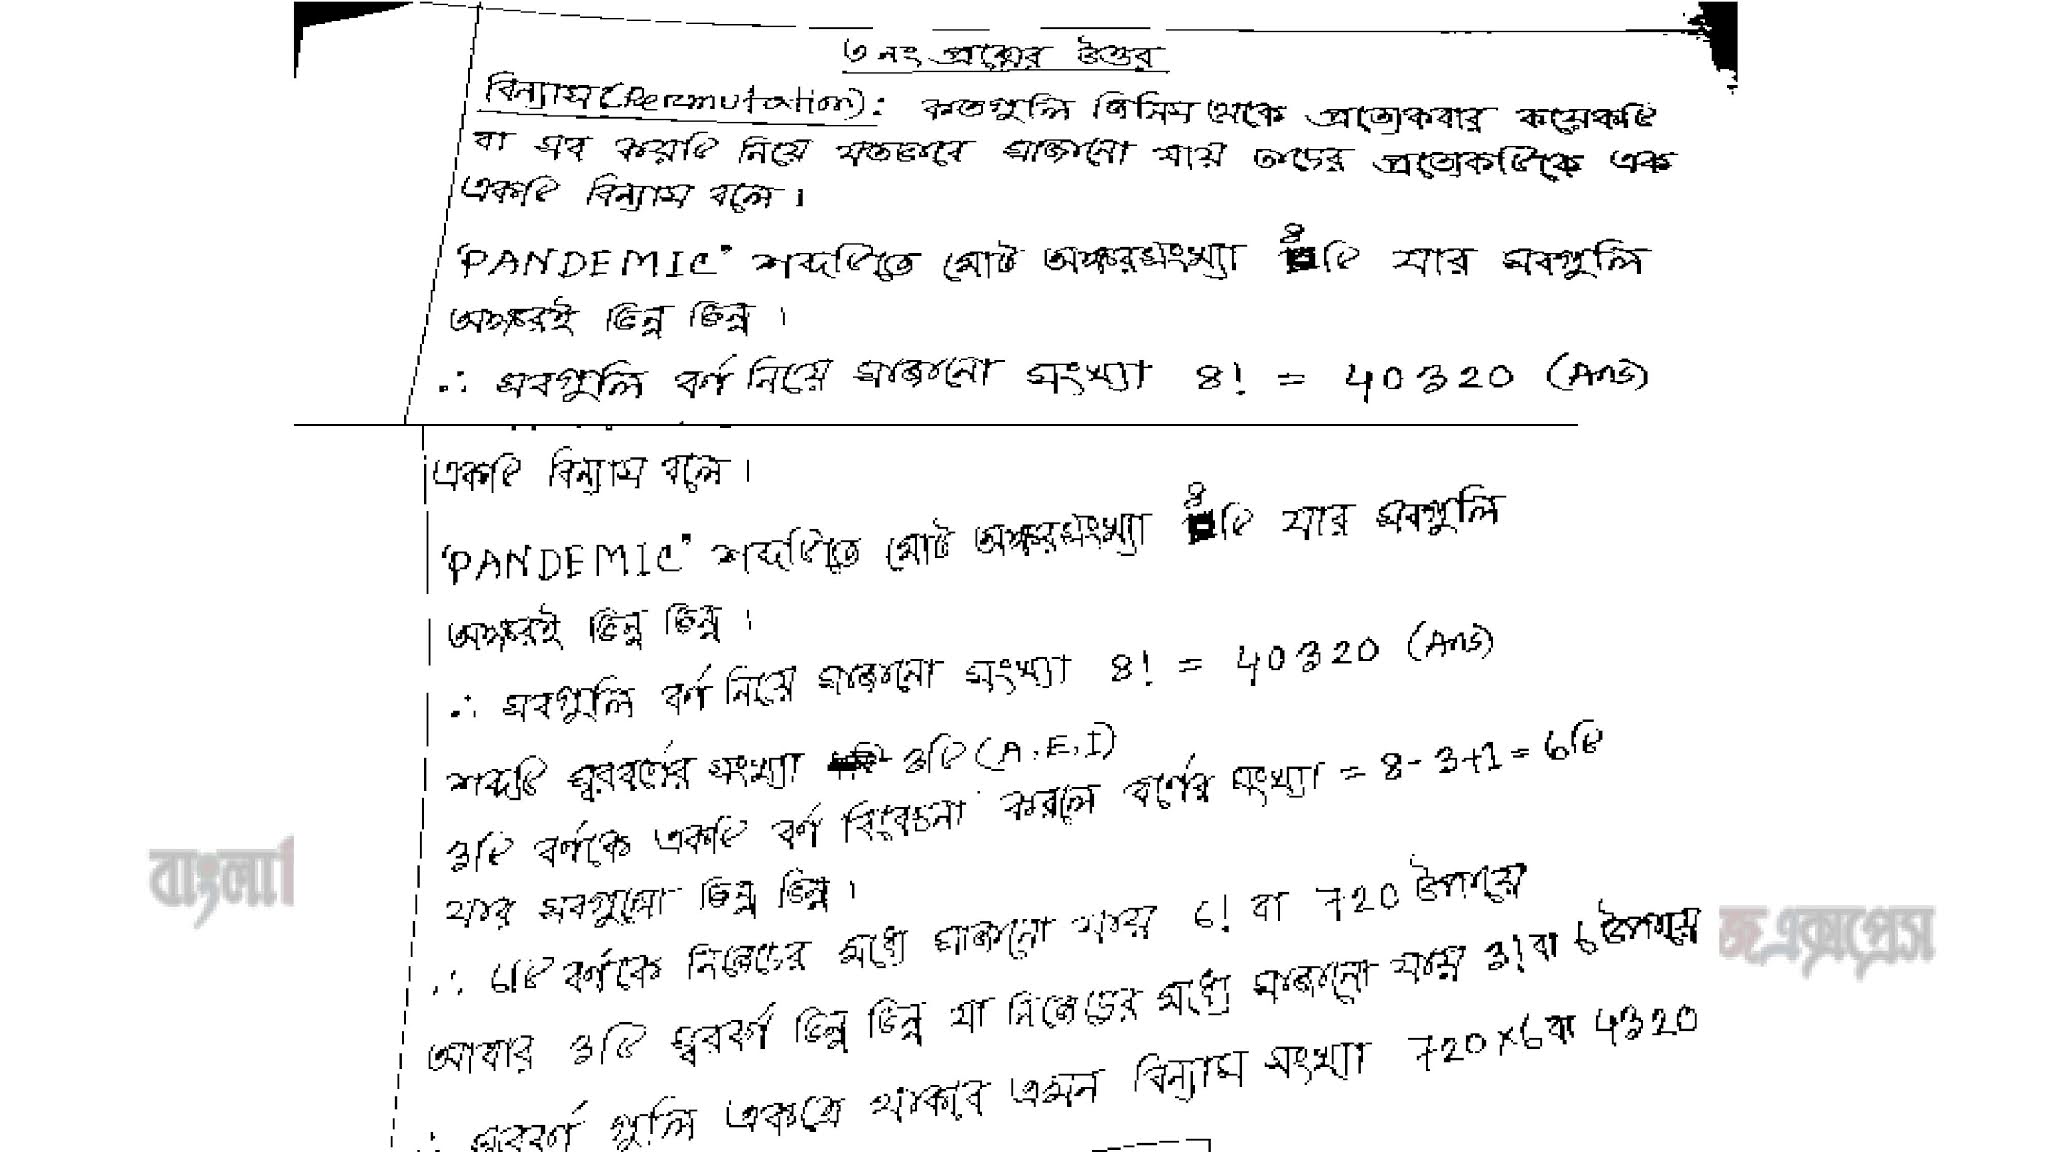 ৩ নং প্রশ্নের উত্তর
বিন্যাস (Permutation): কতগুলি জিনিস থেকে প্রত্যেকবার কয়েকটি
বা সব কয়টি নিয়ে যতভাবে সাজানো যায় তাদের প্রত্যেকটিকে এক
একটি বিন্যাস বলে।
'PANDEMIC" শব্দটিতে মোট অক্ষরসংখ্যা 8 টি যার সবগুলি
অক্ষরই ভিন্ন ভিন্ন।
∴ সবগুলি বর্ণ নিয়ে সাজানো সংখ্যা 8! = 40320 (Ans)
একটি বিন্যাস বলে।
'PANDEMIC" শব্দটিতে মোট অক্ষরসংখ্যা 8 টি যার সবগুলি
অক্ষরই ভিন্ন ভিন্ন।
∴ সবগুলি বর্ণ নিয়ে সাজানো সংখ্যা 8! = 40320 (Ans)
শব্দটি স্বরবর্ণের সংখ্যা 3টি (A, E, I)
3টি বর্ণকে একটি বর্ণ বিবেচনা করলে বর্ণের সংখ্যা = 8-3+1 = 6টি
যার সবগুলো ভিন্ন ভিন্ন।
∴ 6টি বর্ণকে নিজেদের মধ্যে সাজানো যায় 6! বা 720 উপায়ে
আবার 3টি স্বরবর্ণ ভিন্ন ভিন্ন যা নিজেদের মধ্যে সাজানো যায় 3! বা 6 উপায়ে
∴ স্বরবর্ণ গুলি একত্রে থাকবে এমন বিন্যাস সংখ্যা 720×6 বা 4320
বাংলা
জ এক্সপ্রেস